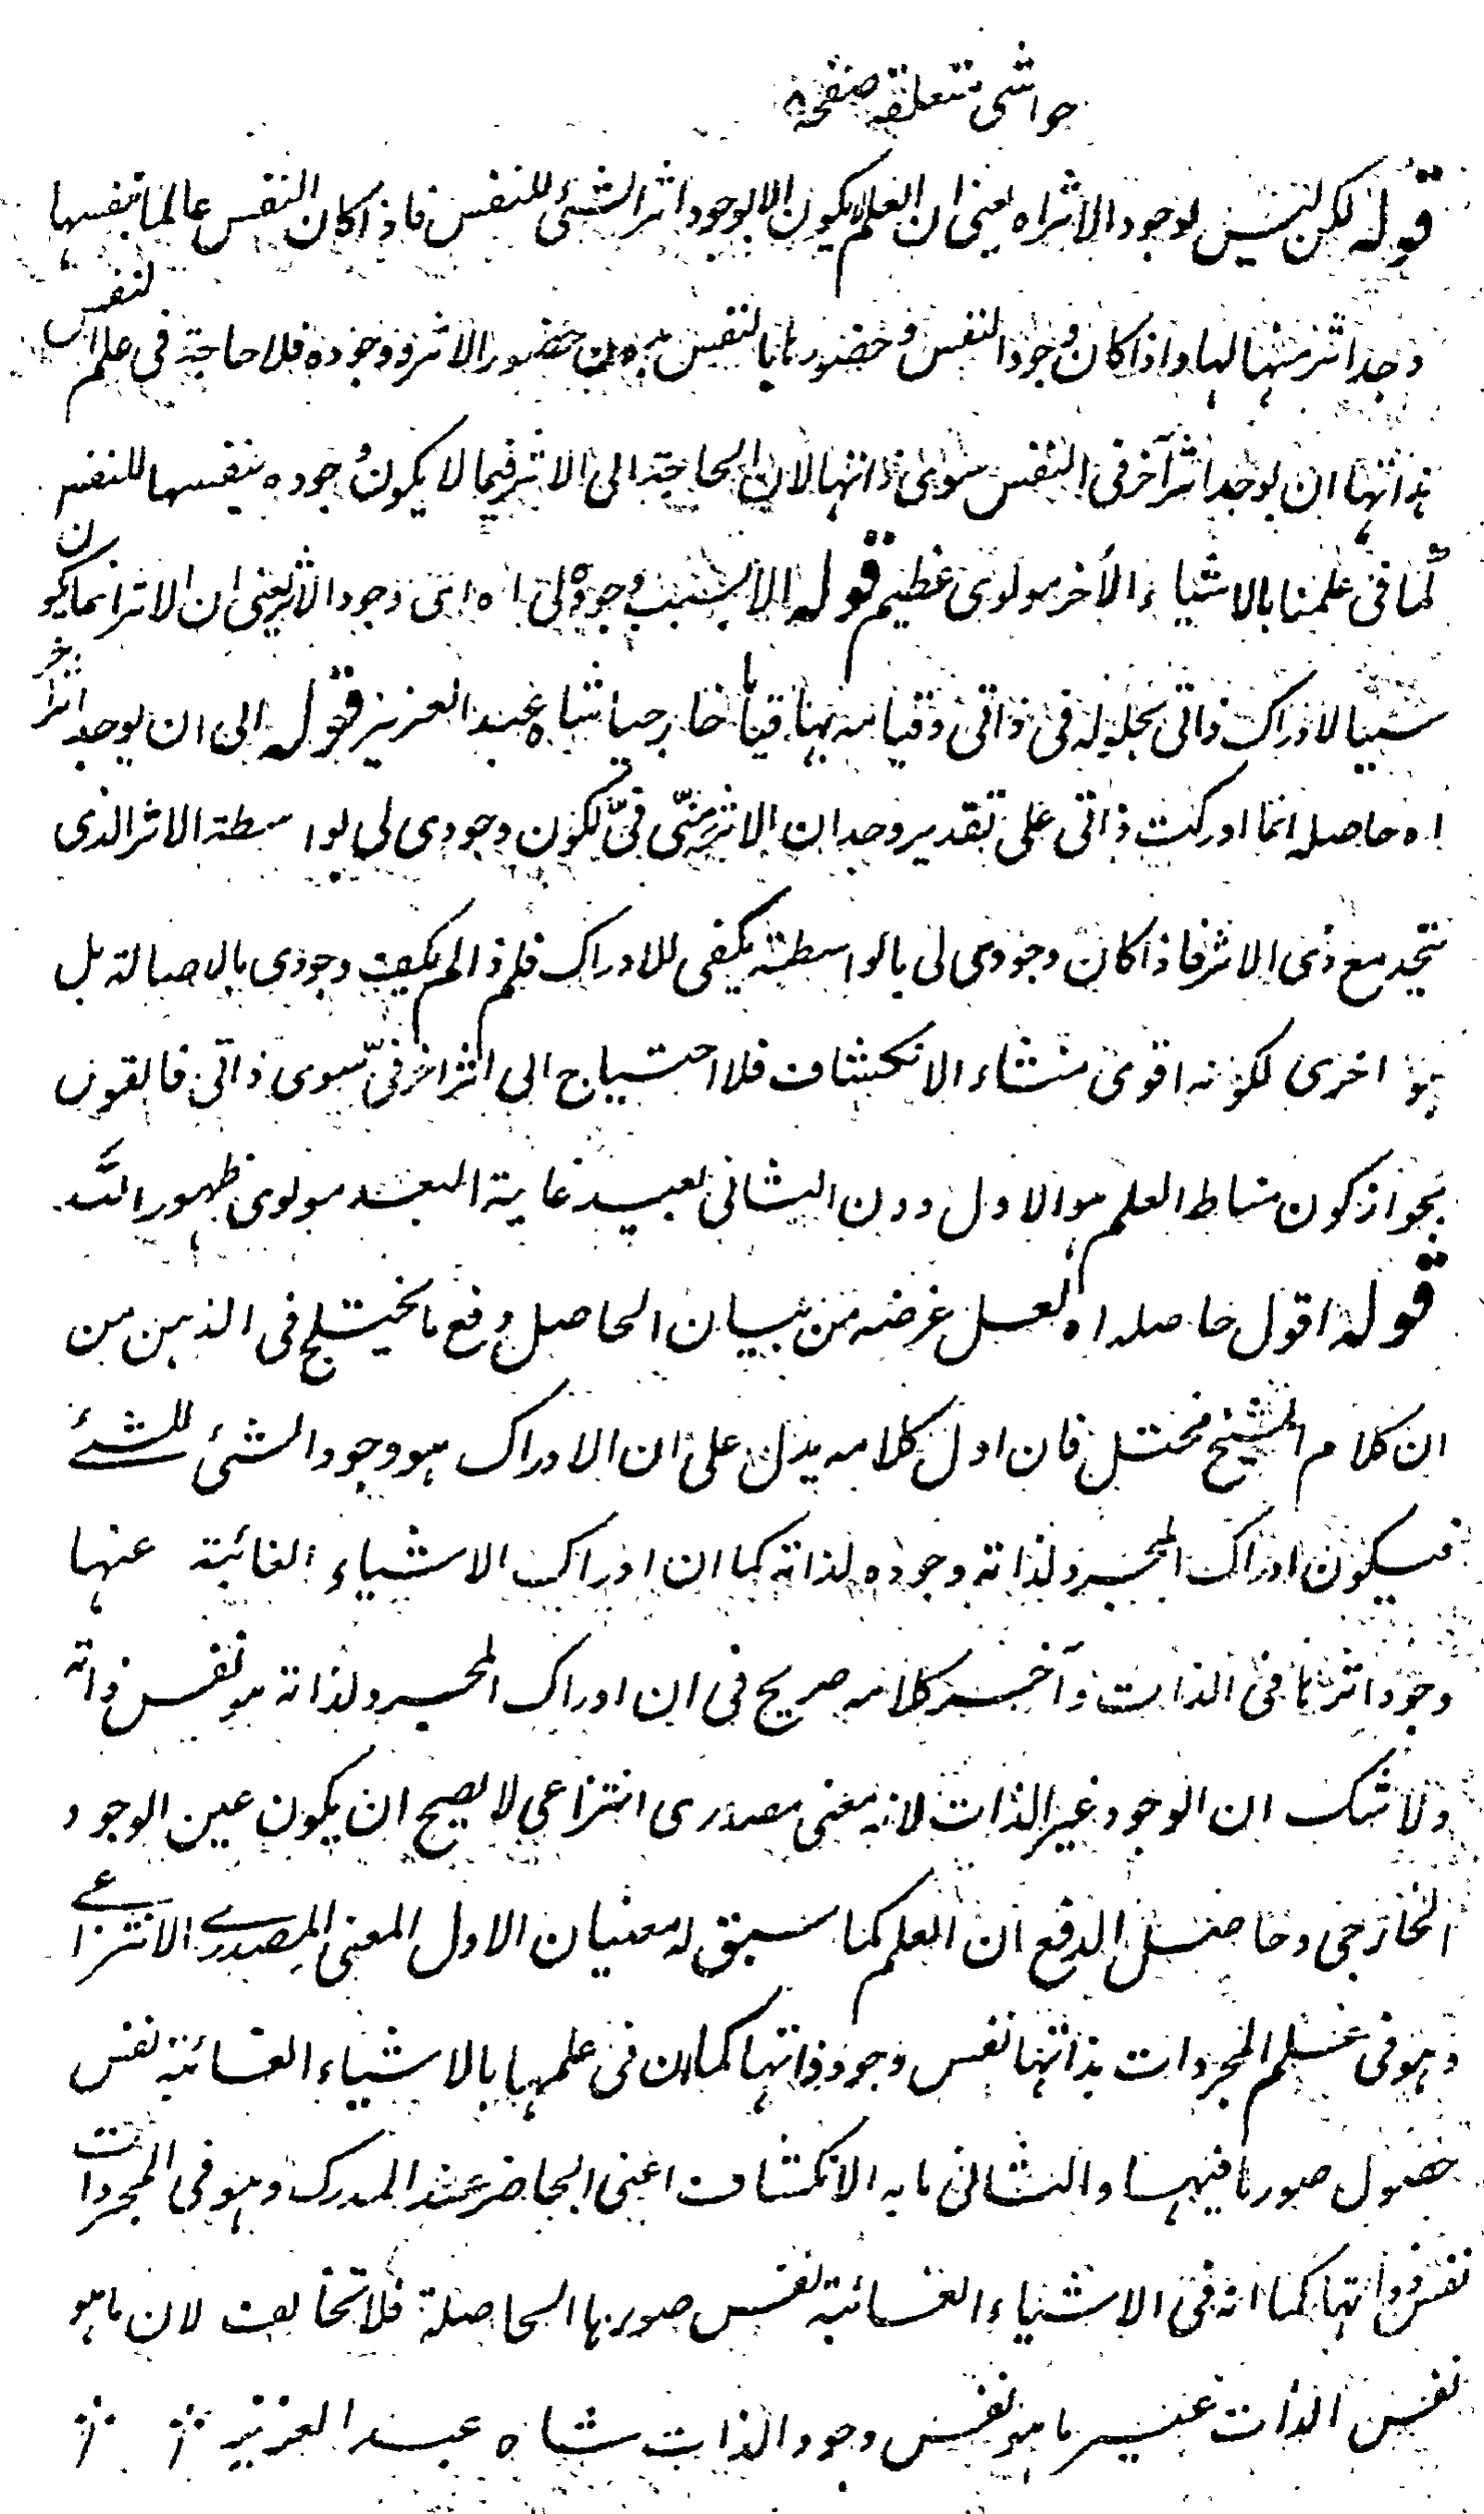 حواشی متعلقہ صفحہ
قوله لكن ليس لوجود الاثر اه يعنى ان العلم لا يكون الا بوجود اثر الشئ للنفس فاذا كان النفس عالما بنفسها
وجد اثر منها لها واذا كان وجود النفس وحضورها بالنفس بدون حضور الاثر ووجوده فلا حاجة فى علم النفس
بذاتها ان يوجد اثر آخر فى النفس سوى ذاتها لان الحاجة الى الاثر فيما لا يكون وجوده بنفسها للنفس
كما فى علمنا بالاشياء الأخر مولوى عظيم قوله الا بسبب وجوده لى اه اى وجود الاثر يعنى ان الاثر انما يكون
سببا لادراك ذاتى بحلوله فى ذاتى وقيامه بها قياما خارجيا شاه عبد العزيز قوله الى ان يوجد اثر آخر
اه حاصله انما ادركت ذاتى على تقدير وجدان الاثر منّى فىّ لكون وجودى لى بواسطة الاثر الذى
يتحد مع ذى الاثر فاذا كان وجودى لى بالواسطة يكفى للادراك فلم ذا لم يكف وجودى بالاصالة بل
هو اخرى لكونه اقوى منشاء الانكشاف فلا احتياج الى اثر اخر فىّ سوى ذاتى فالقول
بجواز كون مناط العلم هو الاول دون الثانى بعيد غاية البعد مولوى ظهور اللّه
قوله اقول حاصله اه لعل غرضه من بيان الحاصل دفع ما يختلج فى الذهن من
ان كلام الشيخ مختل فان اول كلامه يدل على ان الادراك هو وجود الشئ للشئ
فيكون ادراك المجرد لذاته وجوده لذاته كما ان ادراك الاشياء الغائبة عنها
وجود اثرها فى الذات وآخر كلامه صريح فى ان ادراك المجرد لذاته هو نفس ذاته
ولا شك ان الوجود غير الذات لانه معنى مصدرى انتزاعى لا يصح ان يكون عين الوجود
الخارجى وحاصل الدفع ان العلم كما سبق له معنيان الاول المعنى المصدرى الانتزاعى
وهو فى علم المجردات بذاتها نفس وجود ذاتها كما ان فى علمها بالاشياء الغائبة نفس
حصول صورها فيها والثانى ما به الانكشاف اعنى الحاضر عند المدرك وهو فى المجردات
نفس ذواتها كما انه فى الاشياء الغائبة نفس صورها الحاصلة فلا تخالف لان ما هو
نفس الذات غير ما هو نفس وجود الذات شاه عبد العزيز